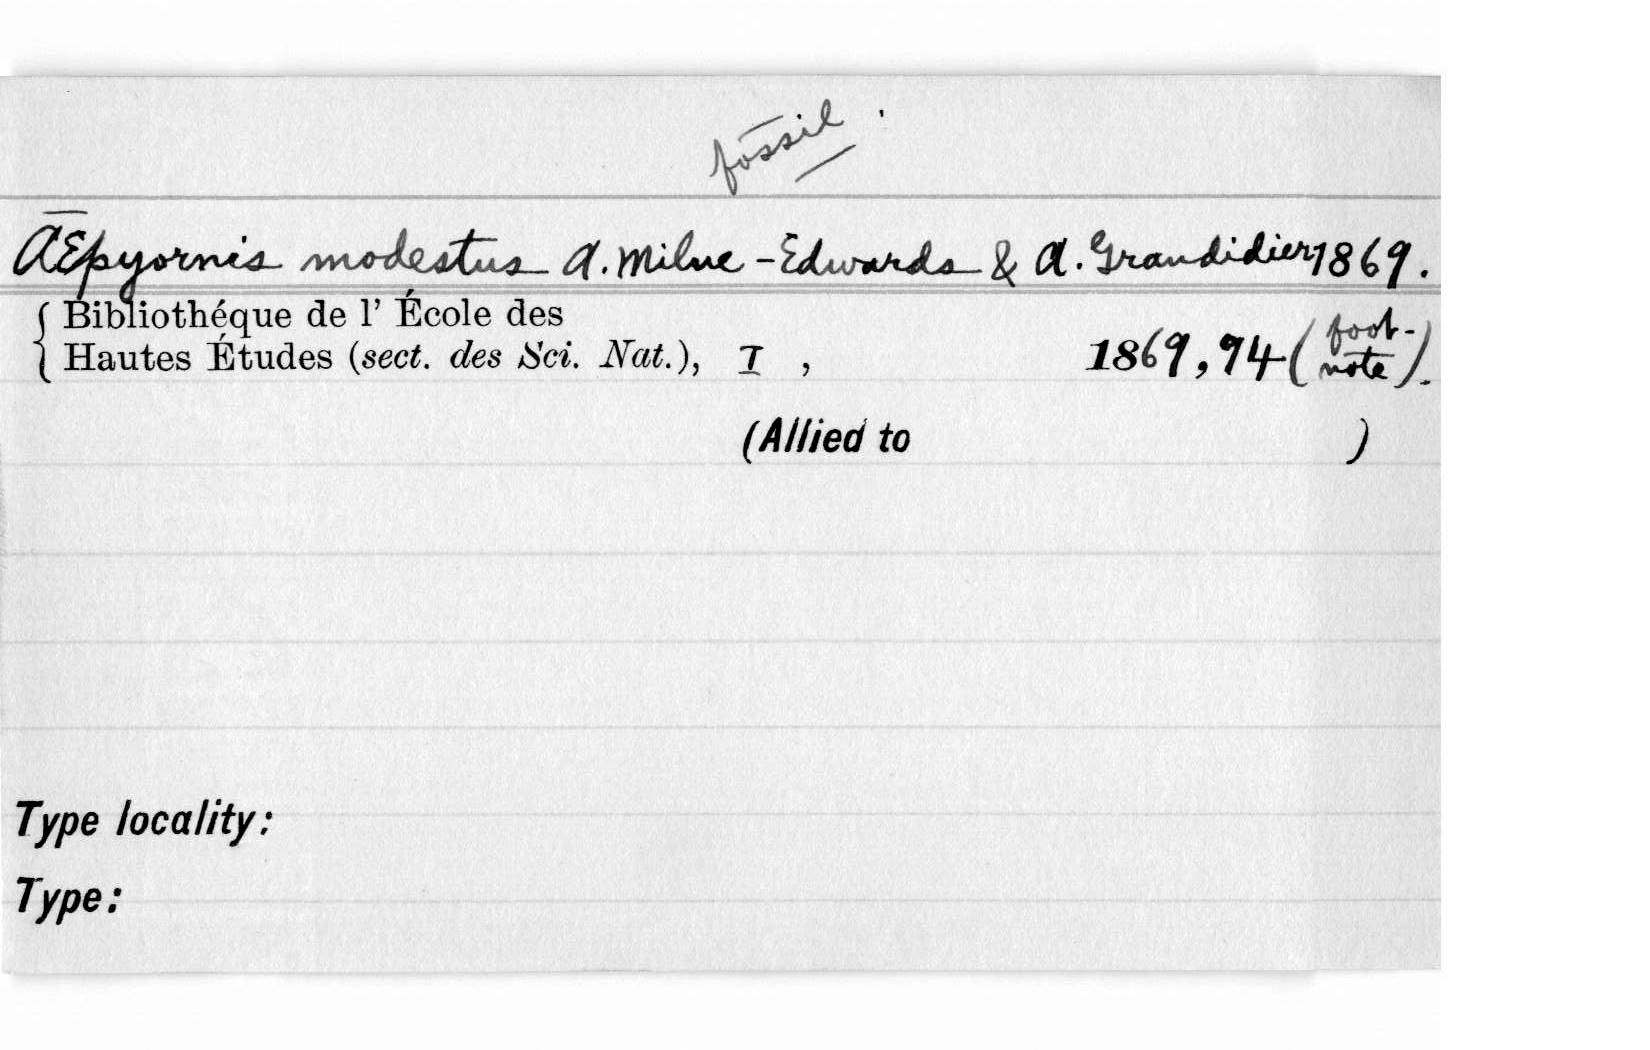 fossil.
Æpyornis modestus A. Milne-Edwards & A. Grandidier 1869.
Bibliothéque de l' École des
Hautes Études (sect. des Sci. Nat.), I , 1869, 94 (foot-
note).
(Allied to )
Type locality:
Type: